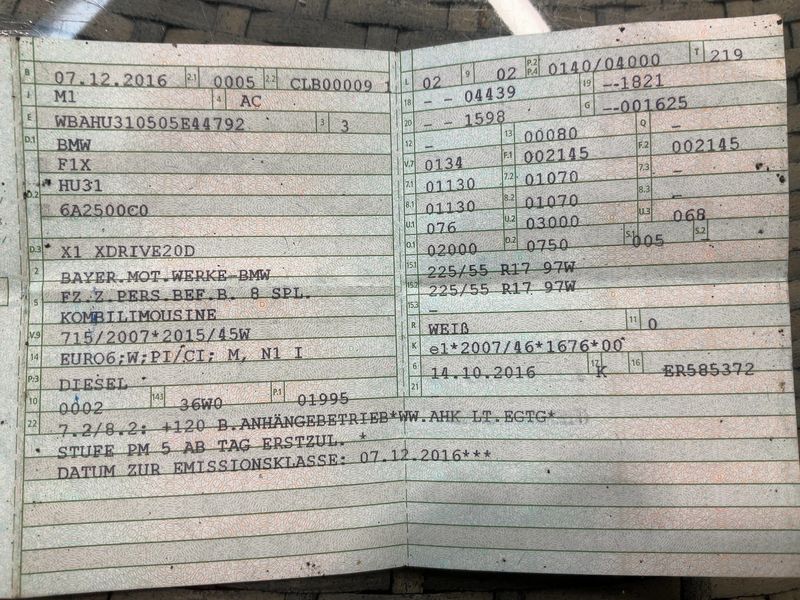 B 07.12.2016 2.1 0005 2.2 CLB00009 1
J M1 4 AC
E WBAHU310505E44792 3 3
D.1 BMW
F1X
HU31
D.2 6A2500C0
D.3 X1 XDRIVE20D
2 BAYER.MOT.WERKE-BMW
5 FZ.Z.PERS.BEF.B. 8 SPL.
KOMBILIMOUSINE
V.9 715/2007*2015/45W
14 EURO6;W;PI/CI; M, N1 I
P.3 DIESEL
10 0002 14.1 36W0 P.1 01995
22 7.2/8.2: +120 B.ANHÄNGEBETRIEB*WW.AHK LT.EGTG*
STUFE PM 5 AB TAG ERSTZUL. *
DATUM ZUR EMISSIONSKLASSE: 07.12.2016***
L 02 9 02 P.2 P.4 0140/04000 T 219
18 - - 04439 19 --1821
20 - - 1598 G --001625
12 - 13 00080 Q -
V.7 0134 F.1 002145 F.2 002145
7.1 01130 7.2 01070 7.3 -
8.1 01130 8.2 01070 8.3 -
U.1 076 U.2 03000 U.3 068
O.1 02000 O.2 0750 S.1 005 S.2 -
15.1 225/55 R17 97W
15.2 225/55 R17 97W
15.3 -
R WEIß 11 0
K e1*2007/46*1676*00
6 14.10.2016 17 K 16 ER585372
21